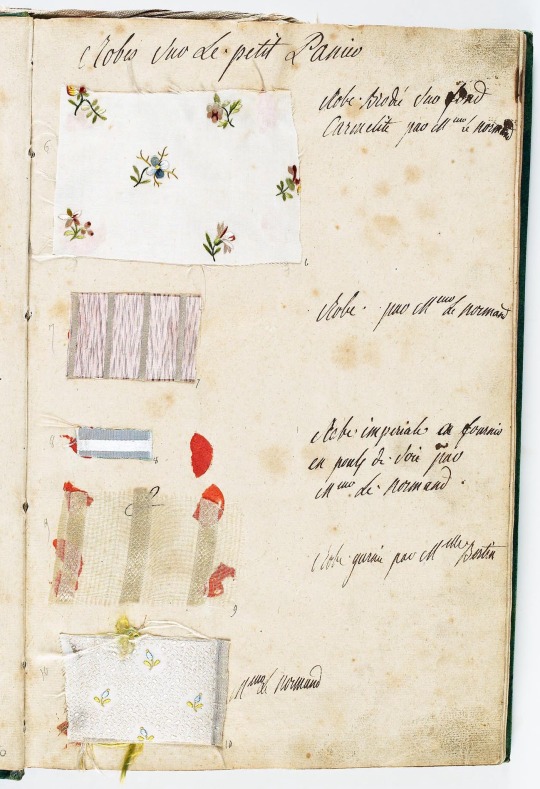 Robes Sur Le petit Panier
Robe Brodé Sur fond
Carmelite par Mme le normand
6
6
Robe par Mme le normand
7
7
Robe imperiale en fournie
en pouls de Soie par
Mme Le normand.
8
8
Robe garnie par Melle Bertin
9
9
10
Mme le normand
10